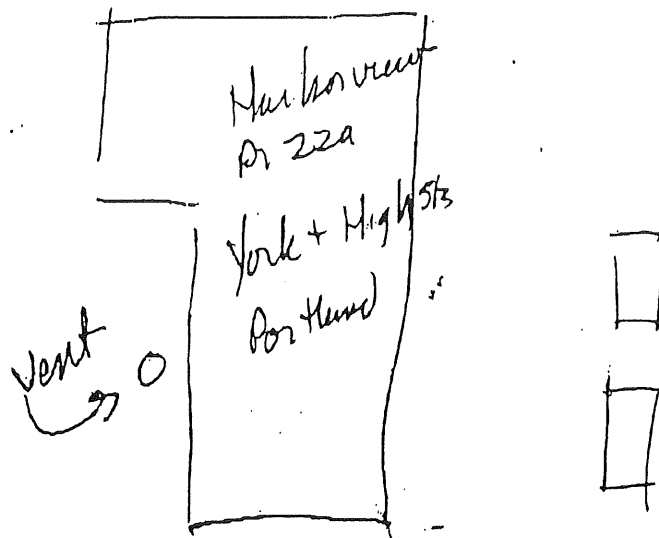 Harborview
York + High Sts
Portland
vent